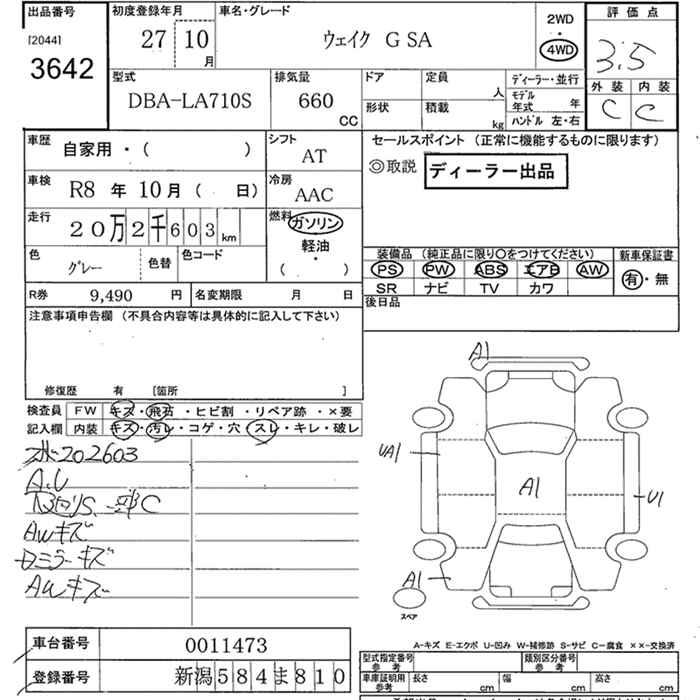 出品番号
[2044]
3642
初度登録年月
27 10 月
車名・グレード
ウェイク G SA
2WD
・
4WD
評価点
3.5
外装 内装
C C
型式
DBA-LA710S
排気量
660
CC
ドア
形状
定員 人
積載 kg
ディーラー・並行
モデル年式 年
ハンドル 左・右
車歴 自家用・( )
シフト
AT
車検 R8 年 10 月 ( 日)
冷房
AAC
走行 20万2千603 km
燃料 ガソリン
軽油
・
( )
色 グレー
色替
色コード
R券 9,490 円
名変期限 月 日
セールスポイント (正常に機能するものに限ります)
◎取説 ディーラー出品
装備品 (純正品に限り○をつけてください)
PS PW ABS エアB AW
SR ナビ TV カワ
新車保証書
有・無
後日品
注意事項申告欄 (不具合内容等は具体的に記入して下さい)
修復歴 有 [箇所 ]
検査員記入欄
FW キズ・飛石・ヒビ割・リペア跡・×要
内装 キズ・汚レ・コゲ・穴・スレ・キレ・破レ
202603
A.U
S.一部C
AWキズ
ミラーキズ
AWキズ
A1
UA1
A1
U1
A1
スペア
A-キズ E-エクボ U-凹み W-補修跡 S-サビ C-腐食 ××-交換済
車台番号 0011473
登録番号 新潟584ま810
型式指定番号
参考
類別区分番号
参考
車庫証明用
参考
長さ cm
幅 cm
高さ cm